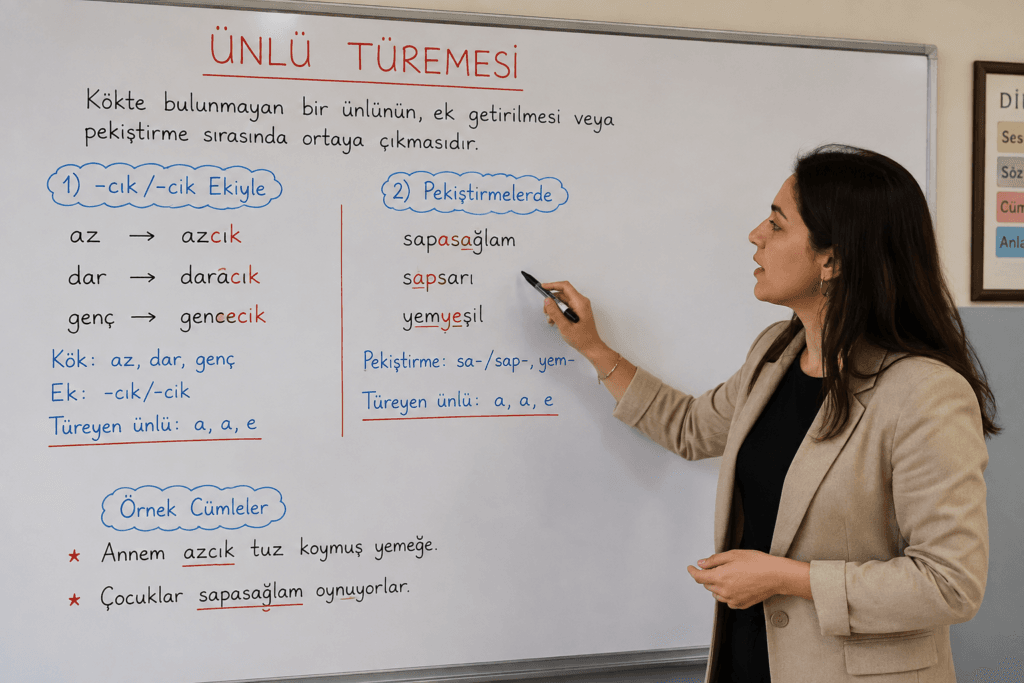 ÜNLÜ TÜREMESİ
Kökte bulunmayan bir ünlünün, ek getirilmesi veya
pekiştirme sırasında ortaya çıkmasıdır.
1) -cık/-cik Ekiyle
az → azcık
dar → darâcık
genç → gencecik
Kök: az, dar, genç
Ek: -cık/-cik
Türeyen ünlü: a, a, e
2) Pekiştirmelerde
sapasağlam
sapsarı
yemyeşil
Pekiştirme: sa-/sap-, yem-
Türeyen ünlü: a, a, e
Örnek Cümleler
★ Annem azcık tuz koymuş yemeğe.
★ Çocuklar sapasağlam oynuyorlar.
Ses
Söz